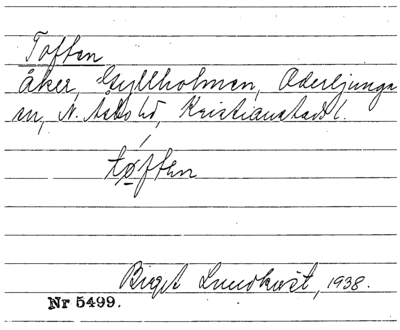 Toften
åker, Gyllholmen, Oderljunga
sn, N. Åsbo hd, Kristianstads l.
tǫ́ften
Birgit Lundkvist, 1938.
Nr 5499.